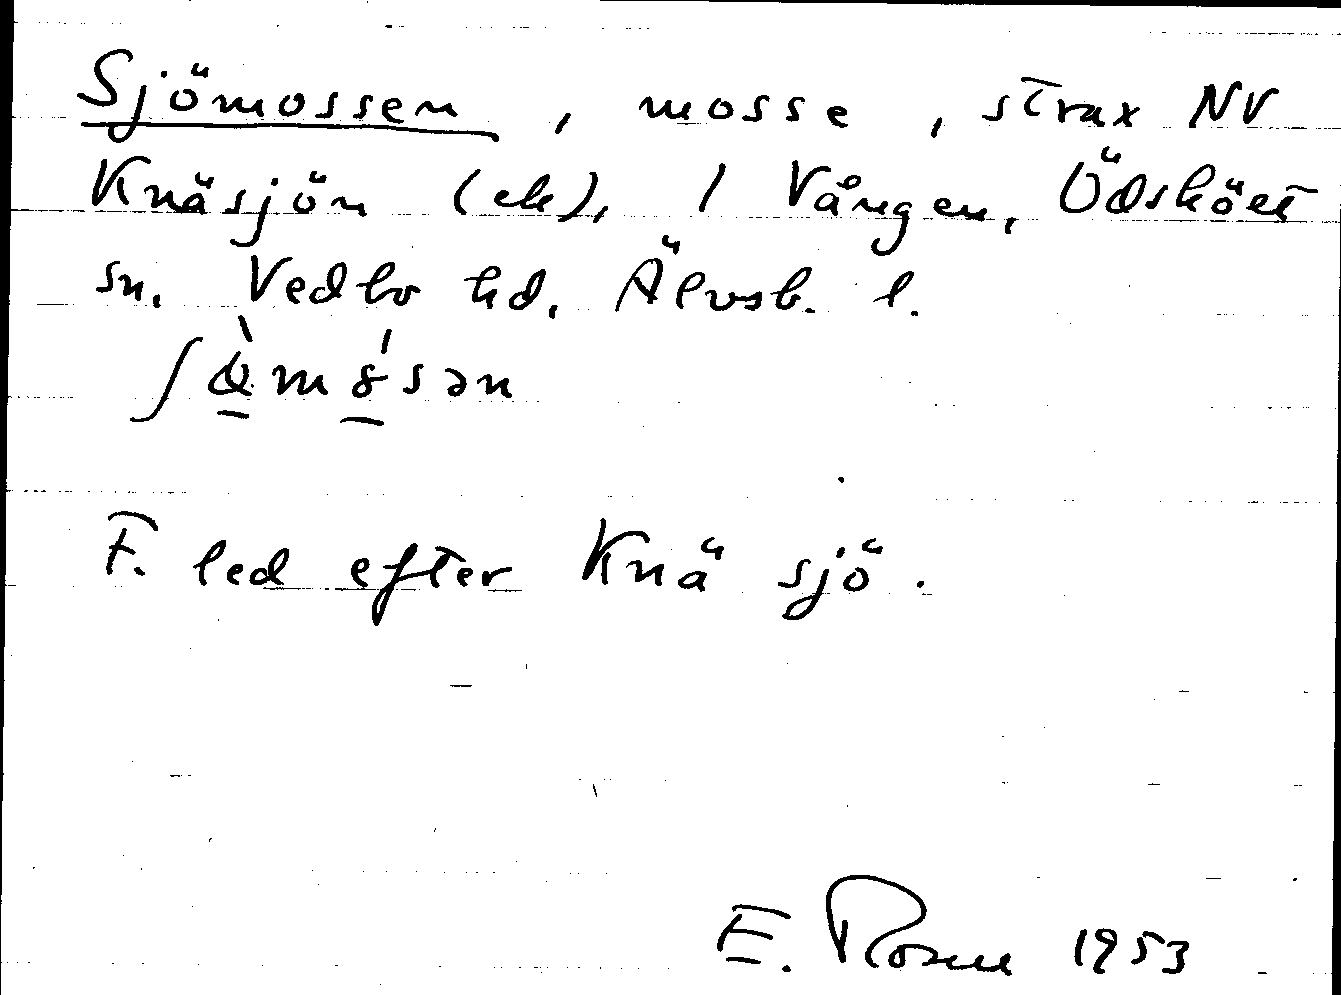 Sjömossen, mosse, strax NV
Knäsjön (ek), 1 Vången, Ödsköet
sn. Vedbo hd. Älvsb. l.
F. led efter Knä sjö.
E. Rosen 1953